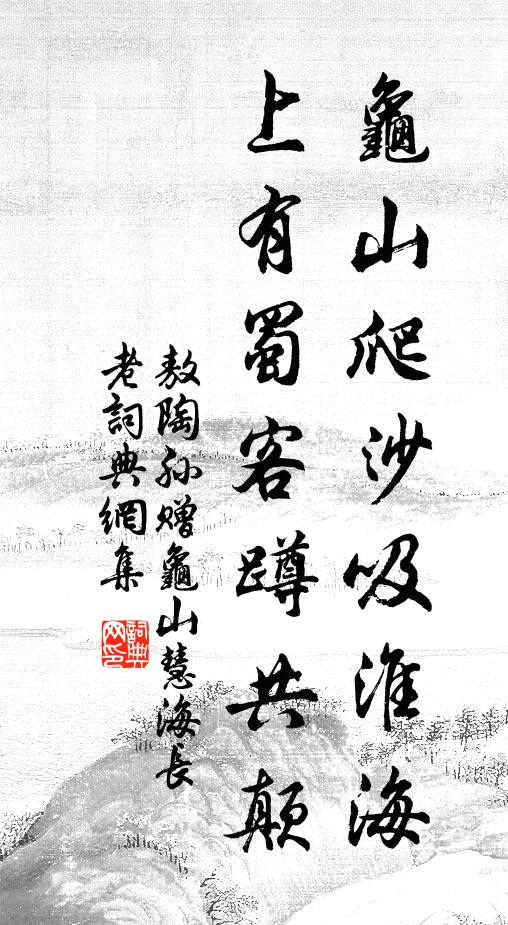 龜山爬沙吸淮海
上有蜀客蹲共顛
敖陶孙赠龜山慧海長
老詞典網集
詞典网印